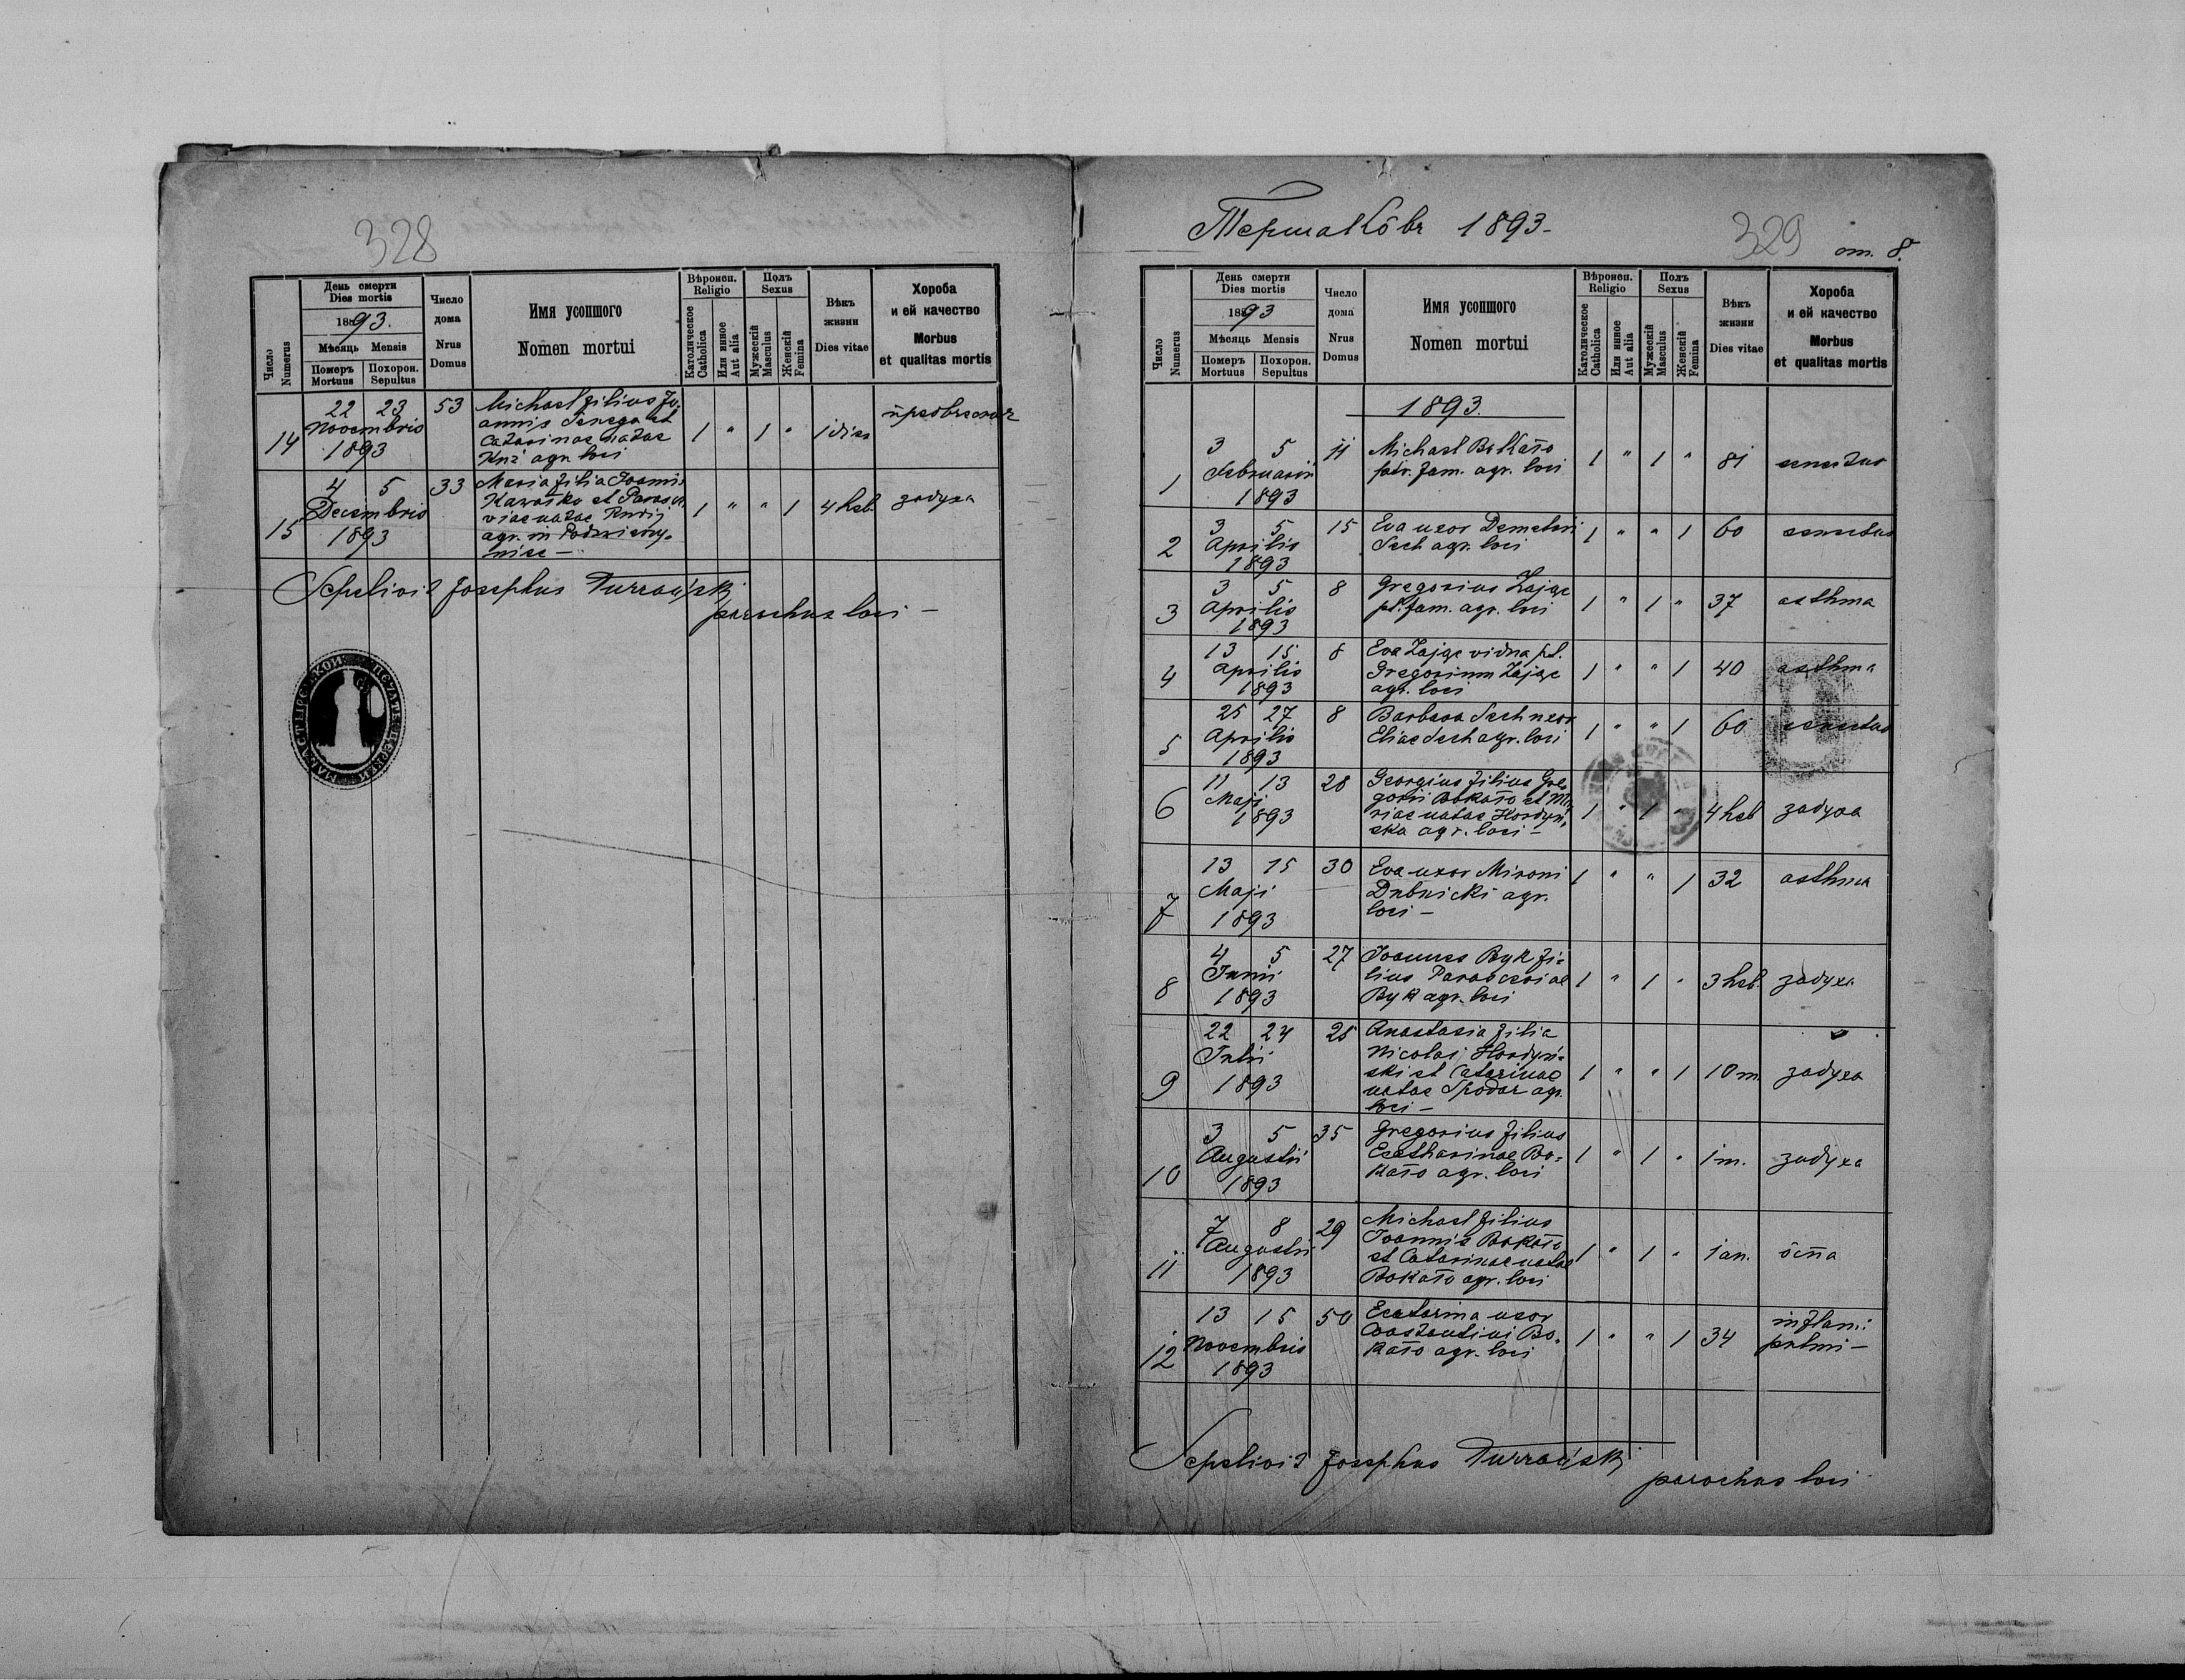 328
Число Numerus
День смерти
Dies mortis
1893.
Мѣсяць Mensis
Померъ Mortuus
Похорон. Sepultus
Число дома
Nrus Domus
Имя усопшого
Nomen mortui
Вѣроисп. Religio
Католическое Catholica
Или инное Aut alia
Полъ Sexus
Мужескій Masculus
Женскій Femina
Вѣкъ жизни
Dies vitae
Хороба и ей качество
Morbus et qualitas mortis
14 22 23 Novembris 1893 53
Michael filius Jo-
annis Senega et
Catarinae natae
Kuź agr. loci
1 " 1 " 1 dies
15 4 5 Decembris 1893 33
Maria filia Joannis
Kawałko et Parasce
viae natae Rudij
agr. in
1 " " 1 4 heb. задуха
Sepelivit Josephus Turzański
parochus loci –
Тершакôвъ 1893 –
329
ст. 8.
Число Numerus
День смерти
Dies mortis
1893
Мѣсяць Mensis
Померъ Mortuus
Похорон. Sepultus
Число дома
Nrus Domus
Имя усопшого
Nomen mortui
Вѣроисп. Religio
Католическое Catholica
Или инное Aut alia
Полъ Sexus
Мужескій Masculus
Женскій Femina
Вѣкъ жизни
Dies vitae
Хороба и ей качество
Morbus et qualitas mortis
1893.
1 3 5 Februarii 1893 11
Michael Bokało
patr. fam. agr. loci
1 " 1 " 81 senectus
2 3 5 Aprilis 1893 15
Eva uxor Demetrii
Sech agr. loci
1 " " 1 60 senectus
3 3 5 Aprilis 1893 8
Gregorius Zając
pt. fam. agr. loci
1 " 1 " 37 asthma
4 13 15 Aprilis 1893 8
Eva Zając vidua pt.
Gregorium Zając
agr. loci
1 " " 1 40 asthma
5 25 27 Aprilis 1893 8
Barbara Sech uxor
Eliae Sech agr. loci
1 " " 1 60 senectus
6 11 13 Maji 1893 28
Georgius filius Gre-
gorii Bokało et Ma
riae natae Hordyń-
ska agr. loci –
1 " 1 " 4 heb задуха
7 13 15 Maji 1893 30
Eva uxor Mironi
Dubnicki agr.
loci –
1 " " 1 32 asthma
8 4 5 Junii 1893 27
Joannes Byk fi-
lius Parasceviae
Byk agr. loci
1 " 1 " 3 heb. задуха
9 22 24 Julii 1893 25
Anastasia filia
Nicolai Hordyń-
ski et Catarinae
natae Spodar agr.
loci –
1 " " 1 10 m. задуха
10 3 5 Augusti 1893 35
Gregorius filius
Ecatharinae Bo-
kało agr. loci
1 " 1 " 1 m. задуха
11 7 8 Augusti 1893 29
Michael filius
Joannis Bokało
et Catarinae natae
Bokało agr. loci
1 " 1 " 1 an. ôспа
12 13 15 Novembris 1893 50
Ecatarina uxor
Constantini Bo-
kało agr. loci
1 " " 1 34 inflam: pulmi –
Sepelivit Josephus Turzański
parochus loci